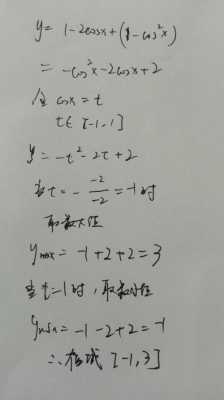 y = 1-2cosx+(1-cos²x)
= -cos²x-2cosx+2
令 cosx=t
t∈[-1,1]
y=-t²-2t+2
当t=- -2/-2 =-1时
取最大值
ymax=-1+2+2=3
当t=1时,取最小值
ymin=-1-2+2=-1
∴值域[-1,3]